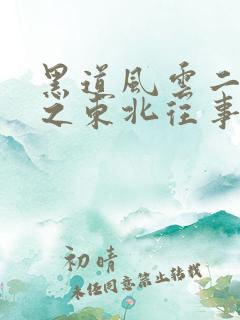 黑道風雲二
之東北往事
初晴
未经同意禁止转载